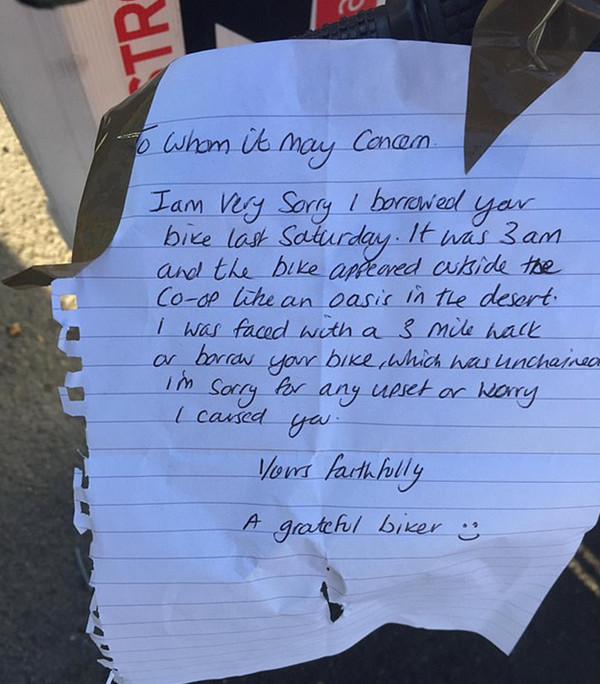 STRO
To Whom it May Concern.
I am Very Sorry I borrowed your
bike last Saturday. It was 3am
and the bike appeared outside the
Co-op like an oasis in the desert.
I was faced with a 3 mile walk
or borrow your bike, which was unchained
i'm sorry for any upset or worry
I caused you.
Yours faithfully
A grateful biker :)